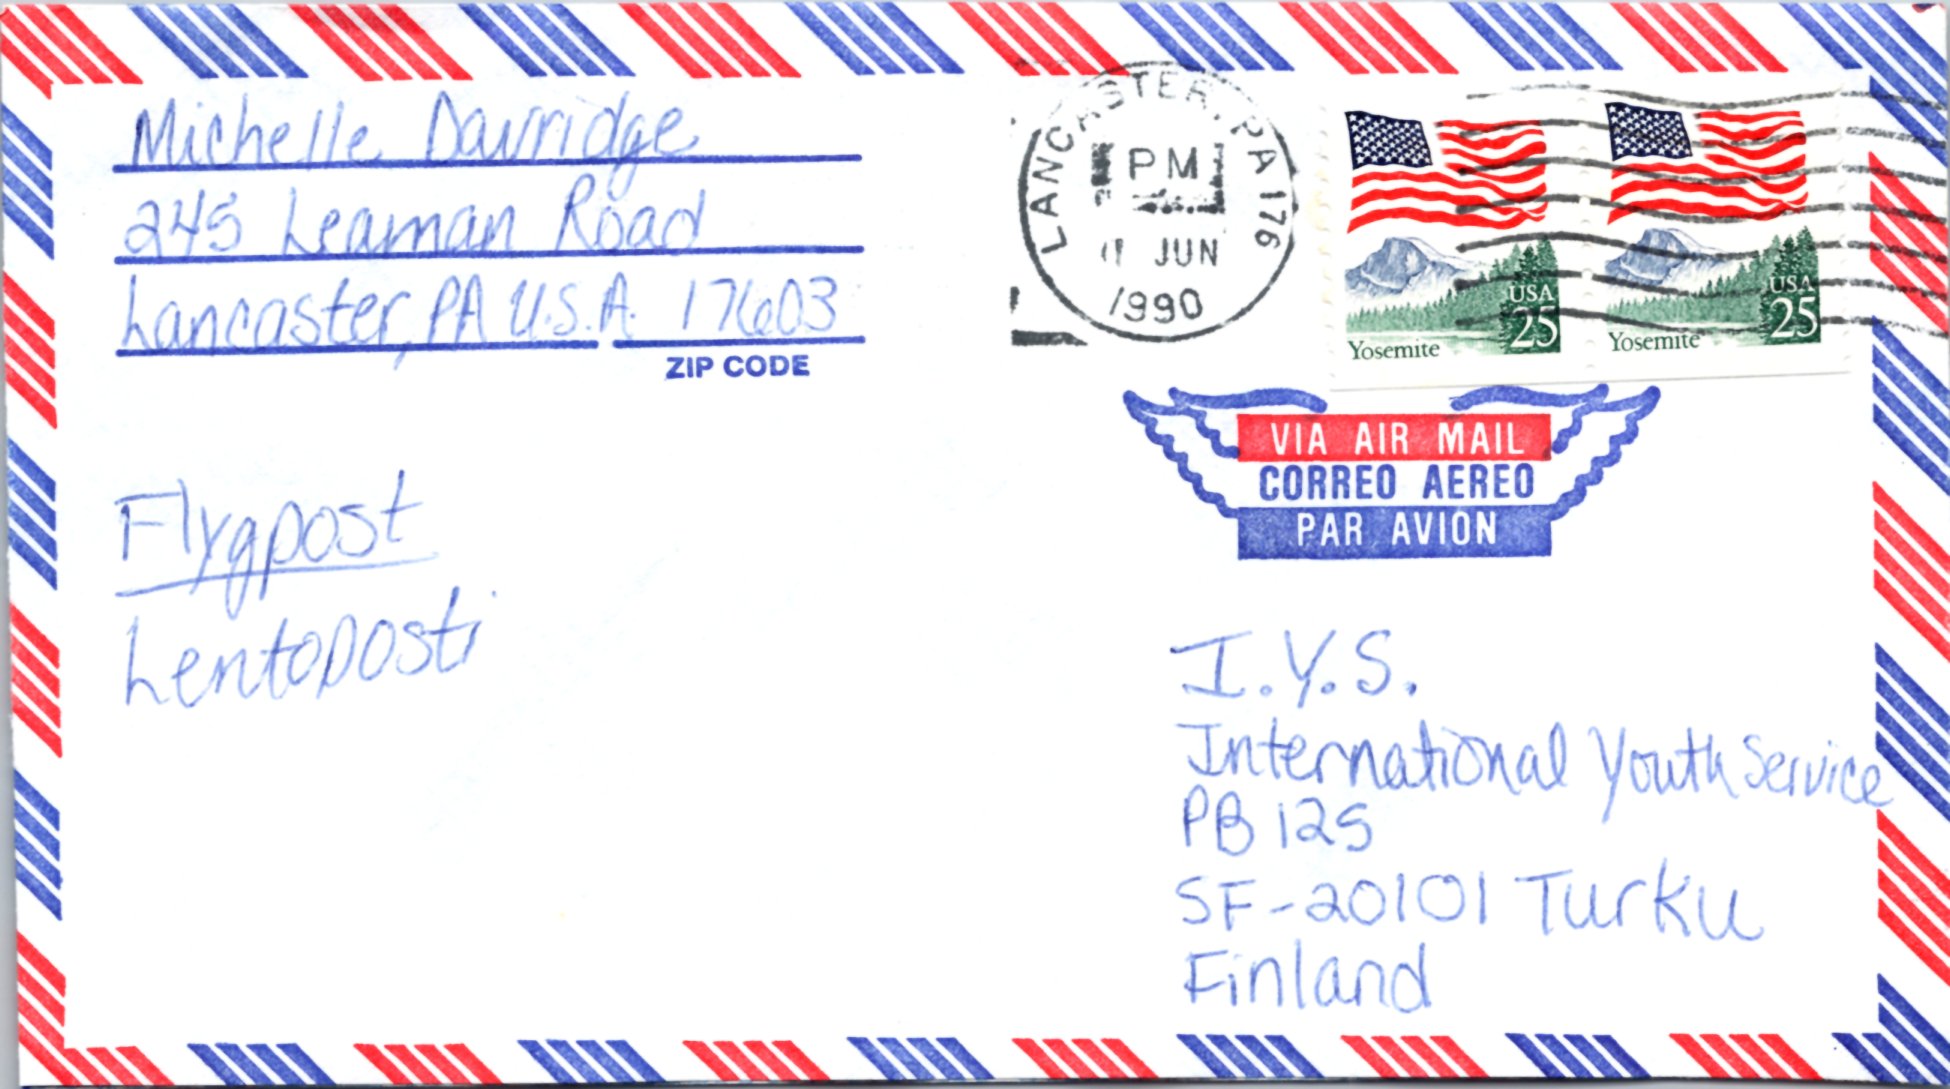 Michelle Davridge
245 Leaman Road
Lancaster, PA U.S.A. 17603
ZIP CODE
LANCASTER, PA 176
PM
JUN
1990
USA
25
Yosemite
USA
25
Yosemite
VIA AIR MAIL
CORREO AEREO
PAR AVION
Flygpost
Lentoposti
I.Y.S.
International Youth Service
PB 125
SF-20101 Turku
Finland